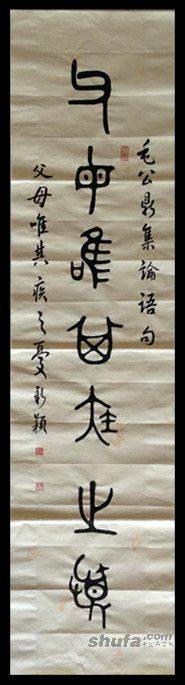 毛公鼎集論語句
父母唯其疾之憂
父母唯其疾之憂 穎
shufa.com